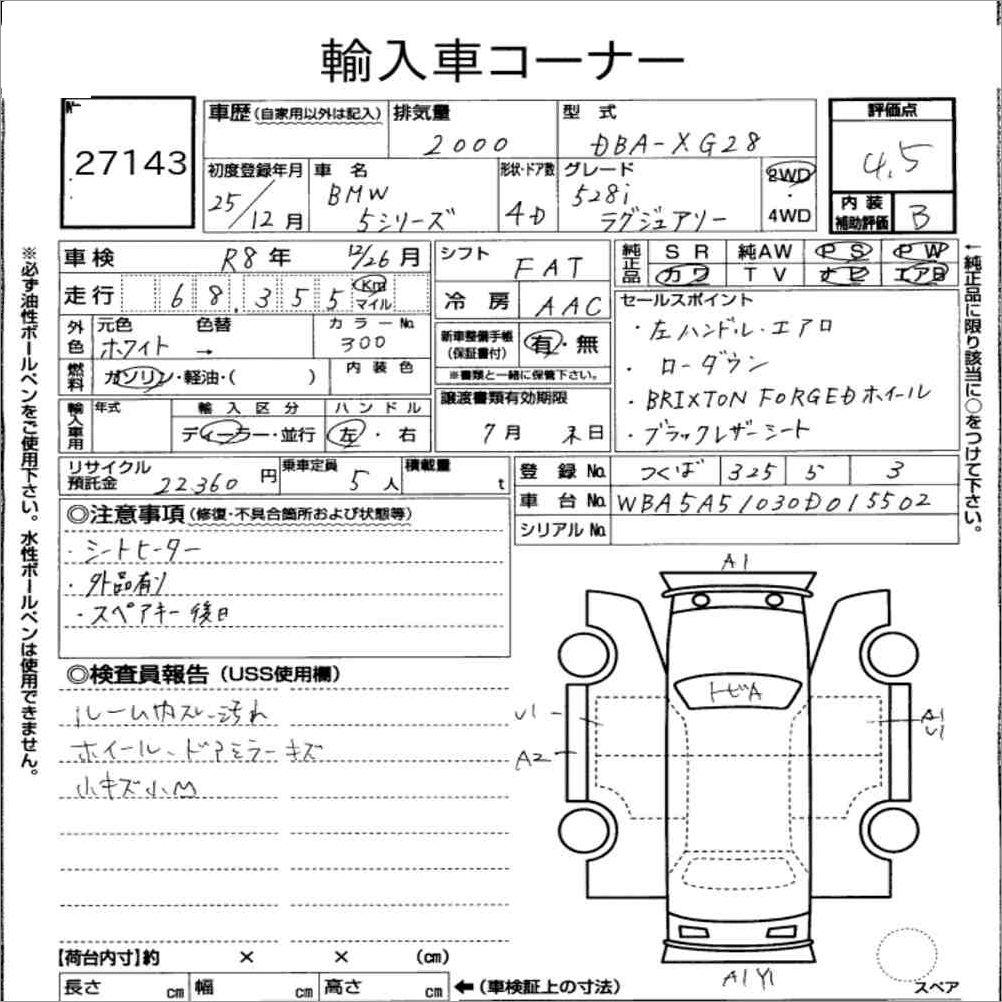 輸入車コーナー
No.
27143
車歴(自家用以外は記入) 排気量 2000
型式 DBA-XG28
評価点 4.5
内装補助評価 B
初度登録年月 25/12月
車名 BMW 5シリーズ
形状・ドア数 4D
グレード 528i ラグジュアリー
2WD・4WD
車検 R8年 12/26月
シフト FAT
純正品 SR 純AW PS PW
カワ TV ナビ エアB
走行 68,355 Km マイル
冷房 AAC
セールスポイント
・左ハンドル・エアロ
・ローダウン
・BRIXTON FORGED ホイール
・ブラックレザーシート
外色 元色 ホワイト 色替 → カラーNo. 300
新車整備手帳(保証書付) 有・無
※書類と一緒に保管下さい。
燃料 ガソリン・軽油・( ) 内装色
譲渡書類有効期限
7月 末日
輸入車用 年式 輸入区分 ディーラー・並行 ハンドル 左・右
リサイクル預託金 22360円 乗車定員 5人 積載量 t
登録No. つくば 325 5 3
車台No. WBA5A51030D015502
シリアルNo.
◎注意事項(修復・不具合箇所および状態等)
・シートヒーター
・外品有り
・スペアキー後日
◎検査員報告(USS使用欄)
ルーム内スレ・汚れ
ホイール、ドアミラーキズ
小キズ小M
A1
トビA
U1
A2
A1
U1
A1 Y1
スペア
【荷台内寸】約 × × (cm)
長さ cm 幅 cm 高さ cm ←(車検証上の寸法)
※必ず油性ボールペンをご使用下さい。水性ボールペンは使用できません。
←純正品に限り該当に○をつけて下さい。